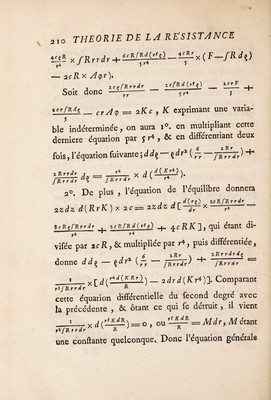 210 THEORIE DE LA RÉSISTANCE
4cϱR/r⁴ × ∫Rrrdr + 2cR∫Rd(r³ϱ)/5r⁴ − 4cRr/5 × (F−∫Rdϱ)
— 2cR × Aφr).
Soit donc 2cϱ∫Rrrdr/rr − 2c∫Rd(r⁵ϱ)/5r⁴ − 2crF/5 +
2cr∫Rdϱ/5 − crAφ = 2Kc, K exprimant une varia-
ble indéterminée, on aura 1°. en multipliant cette
derniere équation par 5r⁴, & en différentiant deux
fois, l'équation suivante; ddϱ − ϱdr² (6/rr − 2Rr/∫Rrrdr) +
2Rrrdr/∫Rrrdr dϱ = 1/∫Rrrdr × d(d(Kr⁴)/r⁴).
2°. De plus, l'équation de l'équilibre donnera
2zdz d(RrK) × 2c = 2zdz d[d(rϱ)/dr × 2cR∫Rrrdr/r³ −
8cRϱ∫Rrrdr/r³ + 2cR∫Rd(r⁵ϱ)/r⁴ + 4cRK], qui étant di-
visée par 2cR, & multipliée par r⁴, puis différentiée,
donne ddϱ − ϱdr² (6/rr − 2Rr/∫Rrrdr) + 2Rrrdrdϱ/∫Rrrdr =
1/r²∫Rrrdr × [d(r⁴d(KRr)/R) − 2drd(Kr⁴)]. Comparant
cette équation différentielle du second degré avec
la précédente, & ôtant ce qui se détruit, il vient
1/r²∫Rrrdr × d(r⁵KdR/R) = 0, ou r⁵KdR/R = Mdr, M étant
une constante quelconque. Donc l'équation générale